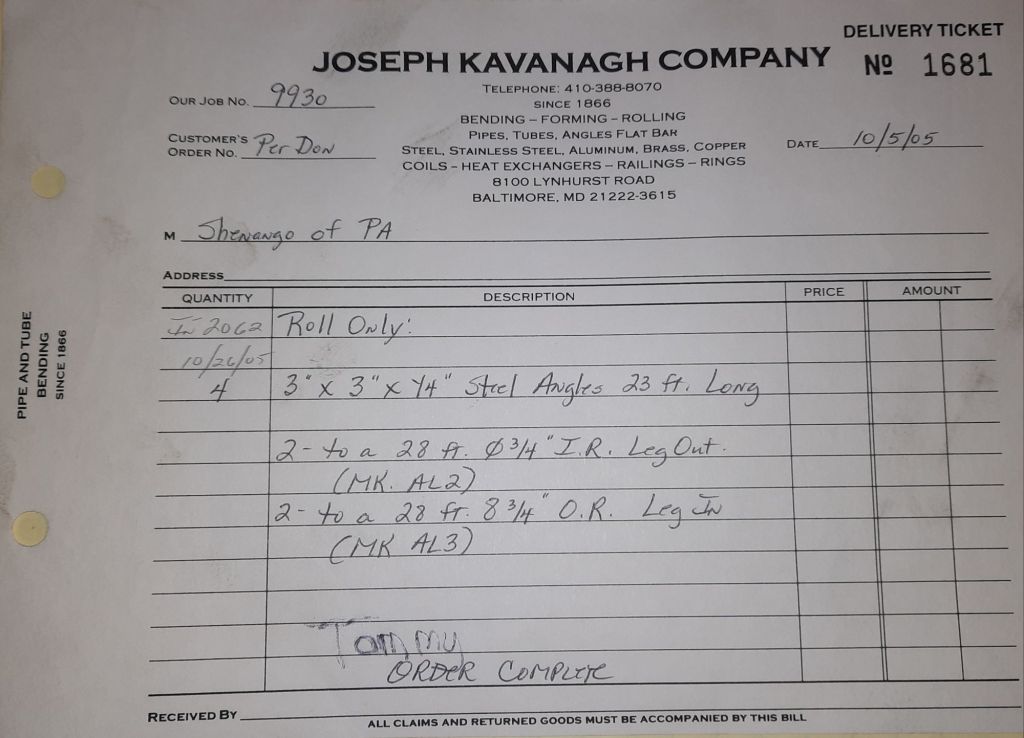 DELIVERY TICKET
JOSEPH KAVANAGH COMPANY
Nº 1681
TELEPHONE: 410-388-8070
SINCE 1866
BENDING – FORMING – ROLLING
PIPES, TUBES, ANGLES FLAT BAR
STEEL, STAINLESS STEEL, ALUMINUM, BRASS, COPPER
COILS – HEAT EXCHANGERS – RAILINGS – RINGS
8100 LYNHURST ROAD
BALTIMORE, MD 21222-3615
OUR JOB NO. 9930
CUSTOMER'S ORDER NO. Per Don
DATE 10/5/05
M Shenango of PA
ADDRESS
QUANTITY DESCRIPTION PRICE AMOUNT
In 2062 Roll Only:
10/26/05
4 3" x 3" x 1/4" Steel Angles 23 ft. Long
2- to a 28 ft. Ø 3/4" I.R. Leg Out.
(MK. AL2)
2- to a 28 ft. 8 3/4" O.R. Leg In
(MK AL3)
Tommy
ORDER COMPLETE
RECEIVED BY
ALL CLAIMS AND RETURNED GOODS MUST BE ACCOMPANIED BY THIS BILL
PIPE AND TUBE
BENDING
SINCE 1866